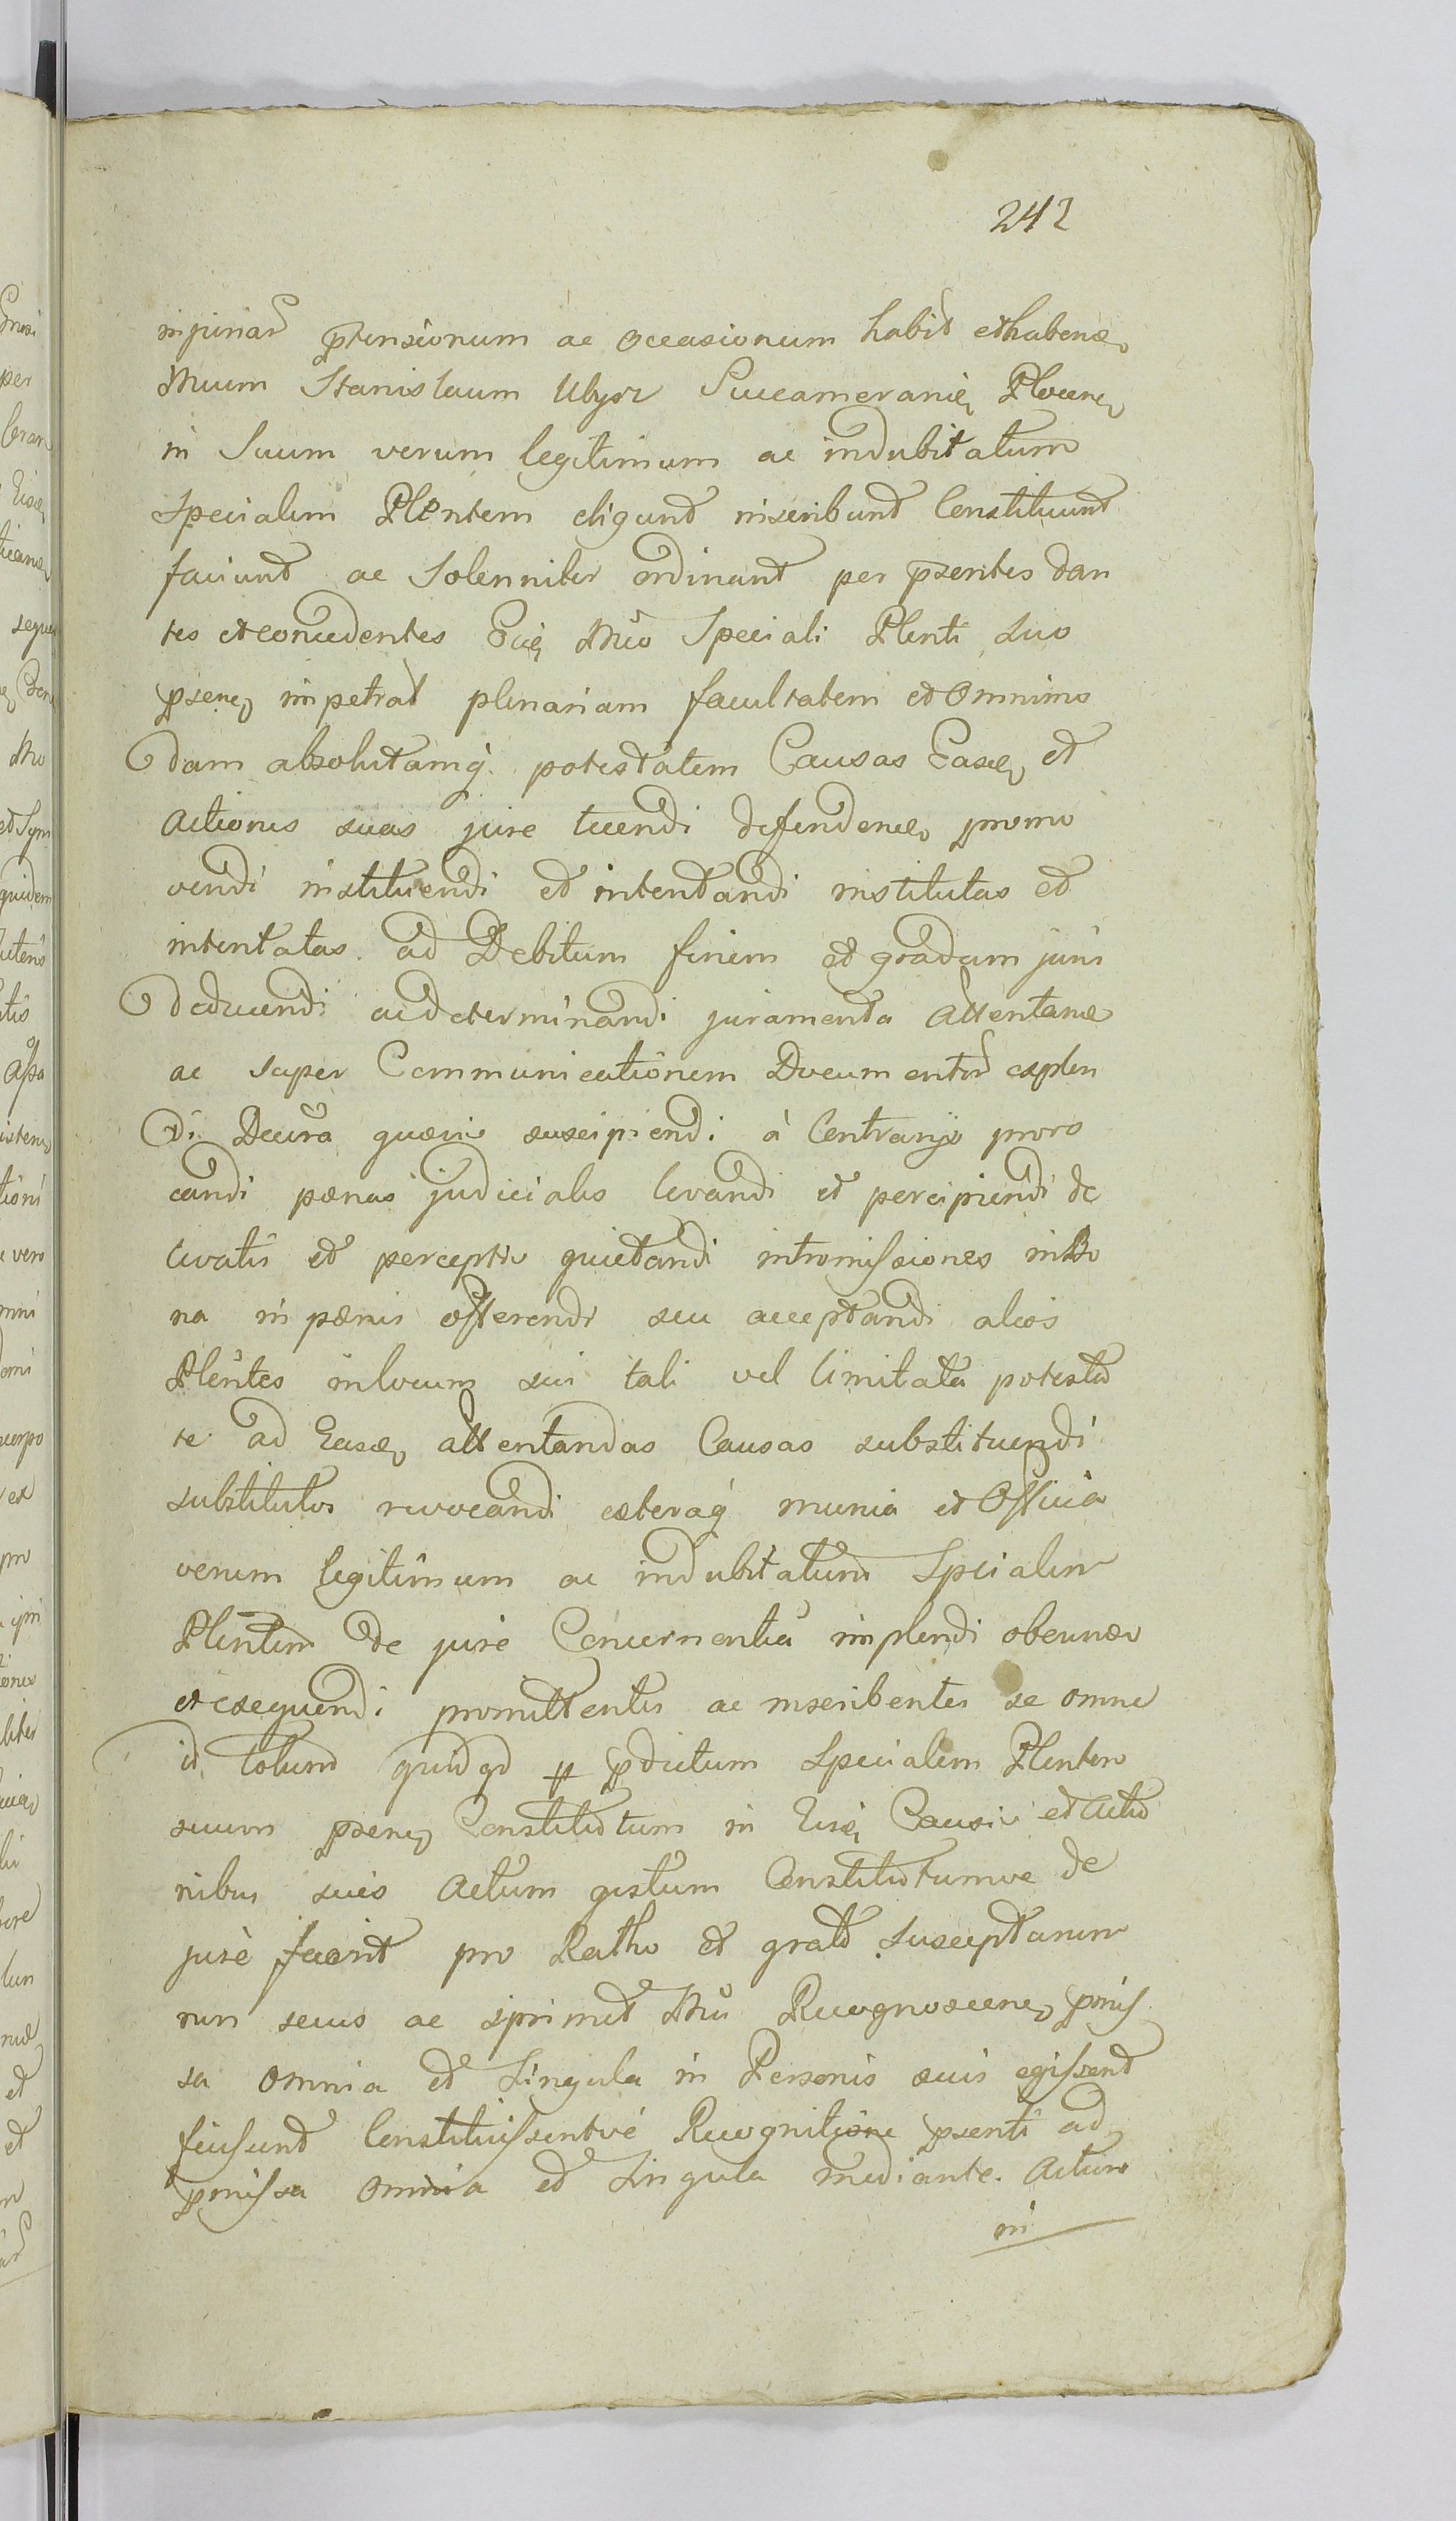 242
injuriar ptensionum ac occasionum habit et habene
Mcum Stanislaum Succameranie Plocene
in Suum verum legitimum ac indubitatum
Specialem Plentem eligunt inscribunt Constituunt
faciunt ac Solenniter ordinant per psentes dan
tes et concedentes Eide Mco Speciali Plenti suo
psene impetrat plenariam facultatem et omnimo
dam absolutamq potestatem Causas Easde et
actiones suas jure tuendi defendende promo
vendi instituendi et intentandi institutas et
intentatas ad Debitum finem et gradum juris
deducendi ac determinandi juramenta attentane
ac super Communicationem Documentor explen
di Decura quaevis suscipiendi à Contrarijs provo
candi paenas judiciales levandi et percipiendi de
levatis et perceptis quietandi intromissiones in Bo
na in paenis offerendi seu acceptandi alios
Plentes in locum sui tali vel limitata potesta
te ad Easde attentandas Causas substituendi
substitutos revocandi caeteraq munia et Officia
verum legitimum ac indubitatum Specialem
Plentem de jure Concernentia implendi obeunde
et exequendi promittentes ac inscribentes se omne
id totum quidqd p pdictum specialem Plentem
suum psene Constitutum in Eisde Causis et actio
nibus suis actum gestum Constitutumve de
jure fuerit pro Ratho et grato suscepturum
non secus ac si primet Mci Recognoscene pmis
sa omnia et Singula in Personis suis egissent
fecissent Constituissentve Recognitione psenti ad
pmissa omnia et Singula mediante. Actum
in